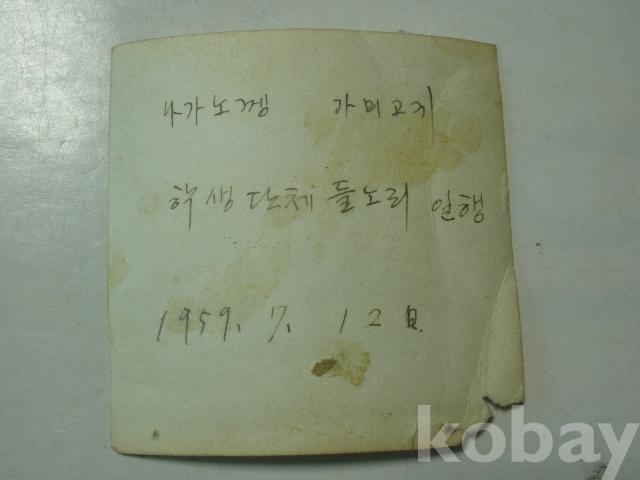 나가노껭 가미고지
학생단체 들노리 일행
1959. 7. 12日.
kobay